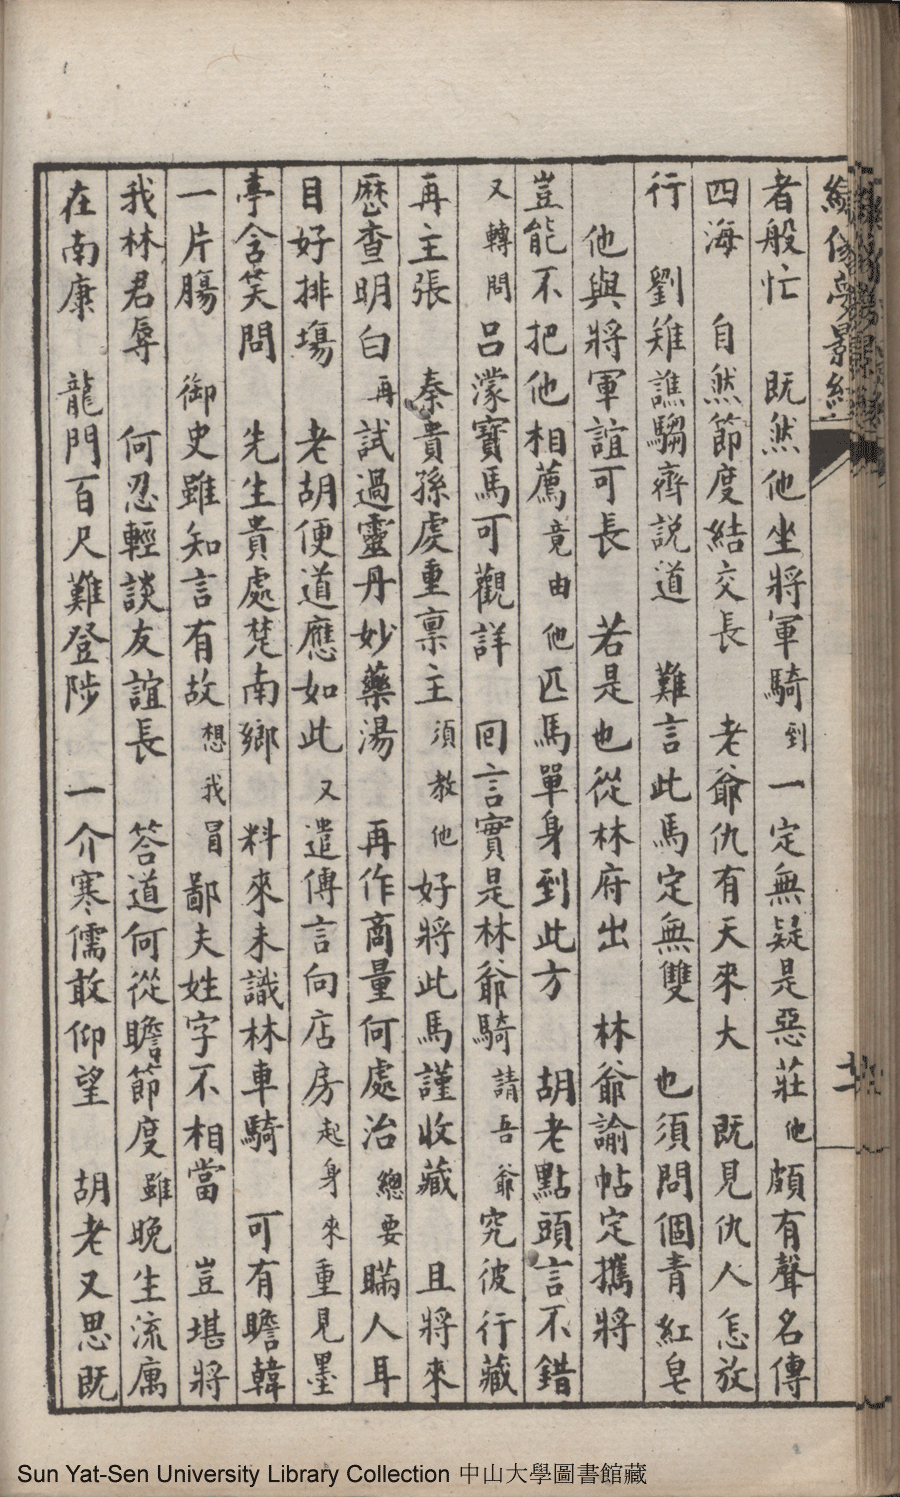 者般忙 既然他坐將軍騎到一定無疑是惡莊他頗有聲名傳
四海 自然節度結交長 老爺仇有天來大 既見仇人怎放
行 劉雉譙騶齊説道 難言此馬定無雙 也須問個青紅皂
他與將軍誼可長 若是也從林府出 林爺諭帖定攜將
豈能不把他相薦竟由他匹馬單身到此方 胡老點頭言不錯
又轉問呂濛寶馬可觀詳 回言實是林爺騎請吾爺究彼行藏
再主張 秦貴孫虔重稟主須教他好將此馬謹收藏 且將來
歷查明白再試過靈丹妙藥湯 再作商量何處治總要瞞人耳
目好排塲 老胡便道應如此又遣傳言向店房起身來重見墨
亭含笑問 先生貴處楚南鄉 料來未識林車騎 可有瞻韓
一片腸 御史雖知言有故想我冒鄙夫姓字不相當 豈堪將
我林君辱 何忍輕談友誼長 答道何從瞻節度雖晚生流寓
在南康 龍門百尺難登陟 一介寒儒敢仰望 胡老又思既
Sun Yat-Sen University Library Collection 中山大學圖書館藏